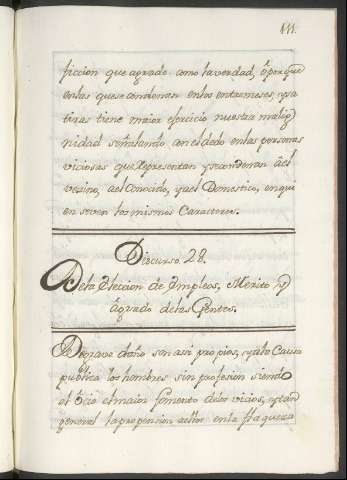 111.
ficcion que agrade como la verdad, ó porque
en las que se condenan en los entremeses, y sa
tiras tiene maior exercicio nuestra malig
nidad señalando con el dedo en las personas
viciosas que representan y condenan al
vezino, al Conocido, y al Domestico, en qui
en se ven los mismos Caracteres.
Discurso 28.
De la Eleccion de Empleos, Merito y
agrado de las Gentes.
De grave daño son asi propios, y a la Causa
publica los hombres sin profesion siendo
el ócio el maior fomento de los vicios, y tan
general la propension a ellos en la flaqueza